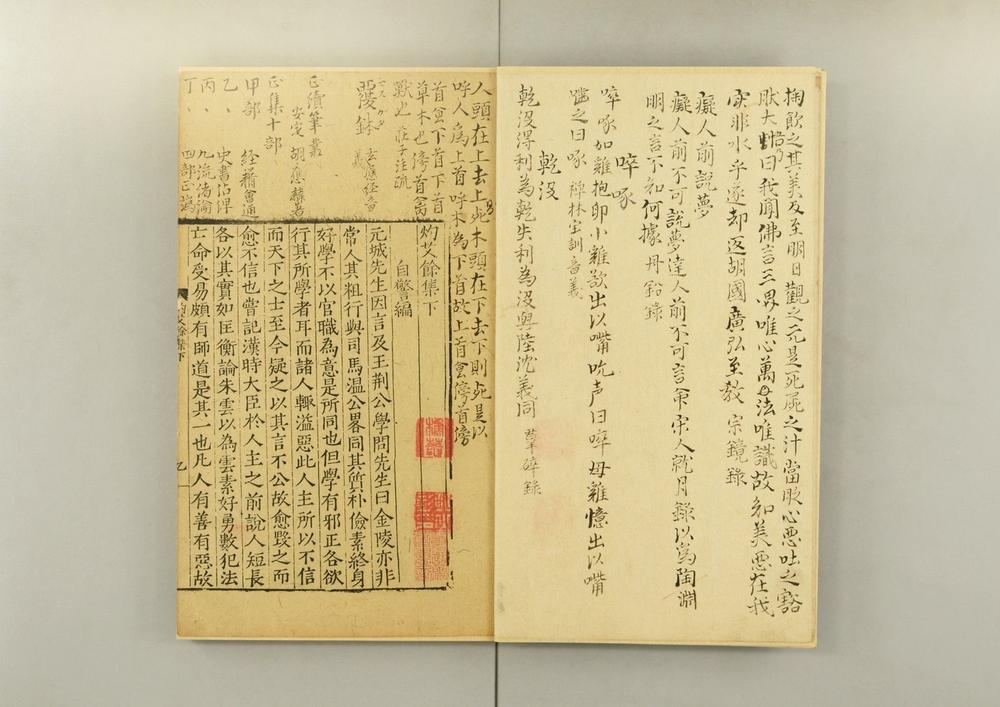 掬飲之其美及至明日觀之元是死屍之汁當服心悪吐之豁
肰大悟乃曰我聞佛言三界唯心萬法唯識故知美悪在我
実非水乎遂却返胡國廣弘至教 宗鏡錄
癡人前說夢
癡人前不可說夢達人前不可言命宋人就月錄以為陶淵
明之言不知何據 丹鉛錄
啐啄
啐啄如雞抱卵小雞欲出以嘴吮声曰啐母雞憶出以嘴
嚙之曰啄 禅林宝訓音義
乾没
乾没得利為乾失利為没與陸沈義同 群碎錄
人頭在上去上死木頭在下去下則死是以
呼人為上首呼木為下首故上首會傍首傍
首會下首下首
草木也傍首禽
獸也 莊子注疏
正續筆叢
安定 胡應麟著
正集十部
甲部 経籍會通
乙、 史書佔俾
丙、 九流緒論
丁、 四部正譌
灼艾餘集下
自警編
元城先生因言及王荆公學問先生曰金陵亦非
常人其粗行與司馬温公畧同其質朴儉素終身
好學不以官職為意是所同也但學有邪正各欲
行其所學者耳而諸人輙溢惡此人主所以不信
而天下之士至今疑之以其言不公故愈毁之而
愈不信也嘗記漢時大臣於人主之前說人短長
各以其實如匡衡論朱雲以為雲素好勇數犯法
亡命受易頗有師道是其一也凡人有善有惡故